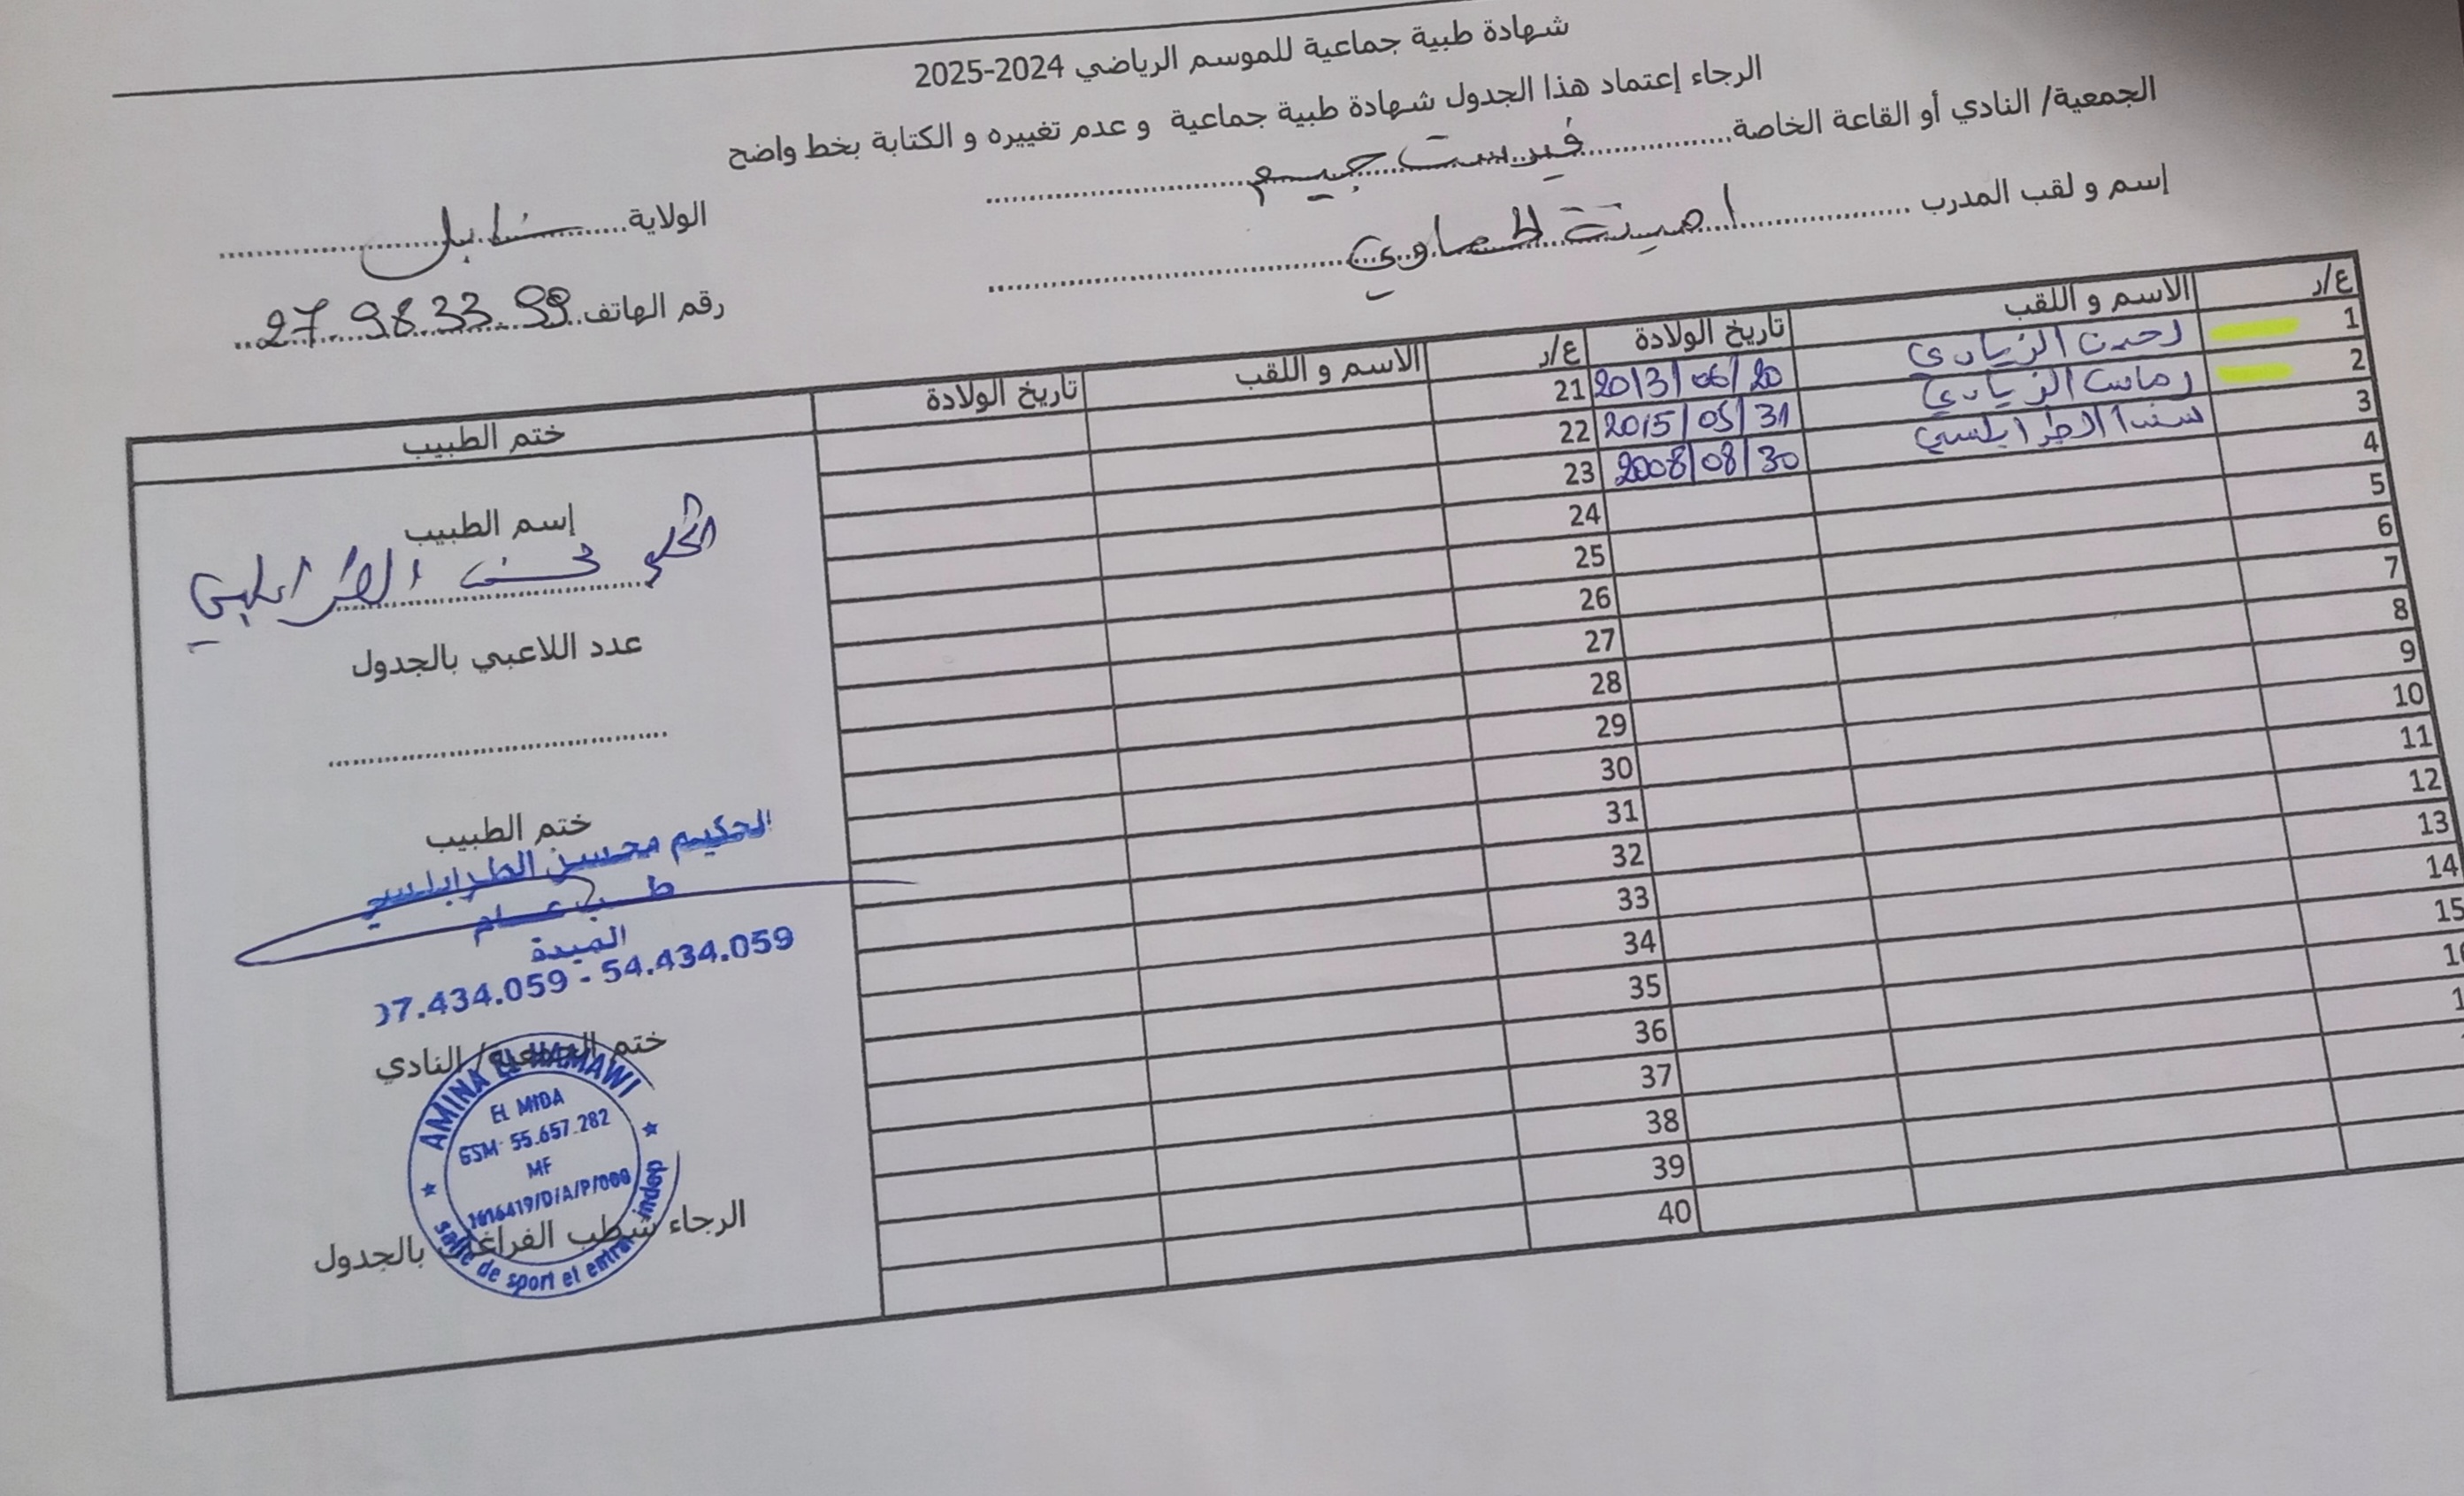 شهادة طبية جماعية للموسم الرياضي 2024-2025
الرجاء إعتماد هذا الجدول شهادة طبية جماعية و عدم تغييره و الكتابة بخط واضح
الجمعية/ النادي أو القاعة الخاصة فيرست جيم
الولاية نابل
إسم و لقب المدرب امينة الحماوي
رقم الهاتف 27.983399
ع/ر الاسم و اللقب تاريخ الولادة ع/ر الاسم و اللقب تاريخ الولادة ختم الطبيب
1 الزيادي 2013/06/20 21
2 الزيادي 2015/05/31 22
3 سندا الطرابلسي 2008/08/30 23
4 24
5 25
6 26
7 27
8 28
9 29
10 30
11 31
12 32
13 33
14 34
15 35
36
37
38
39
40
إسم الطبيب
الحكيم محسن الطرابلسي
عدد اللاعبي بالجدول
ختم الطبيب
الحكيم محسن الطرابلسي
طب عام
الميدة
54.434.059
ختم الجمعية/ النادي
AMINA EL HAMAWI
EL MIDA
GSM: 55.657.282
MF
1616419/D/A/P/000
salle de sport et entrai indep
الرجاء شطب الفراغات بالجدول